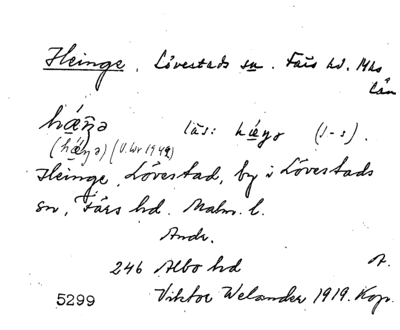 Heinge. Lövestads sn. Färs hd. Mhs
län
hæŋə läs: hæŋə (1-s).
(hæŋə) (U.Wr 1942)
Heinge, Lövestad, by i Lövestads
sn, Färs hd. Malm. l.
Andr.
246 Albo hd A.
5299 Viktor Welander 1919. Kop.